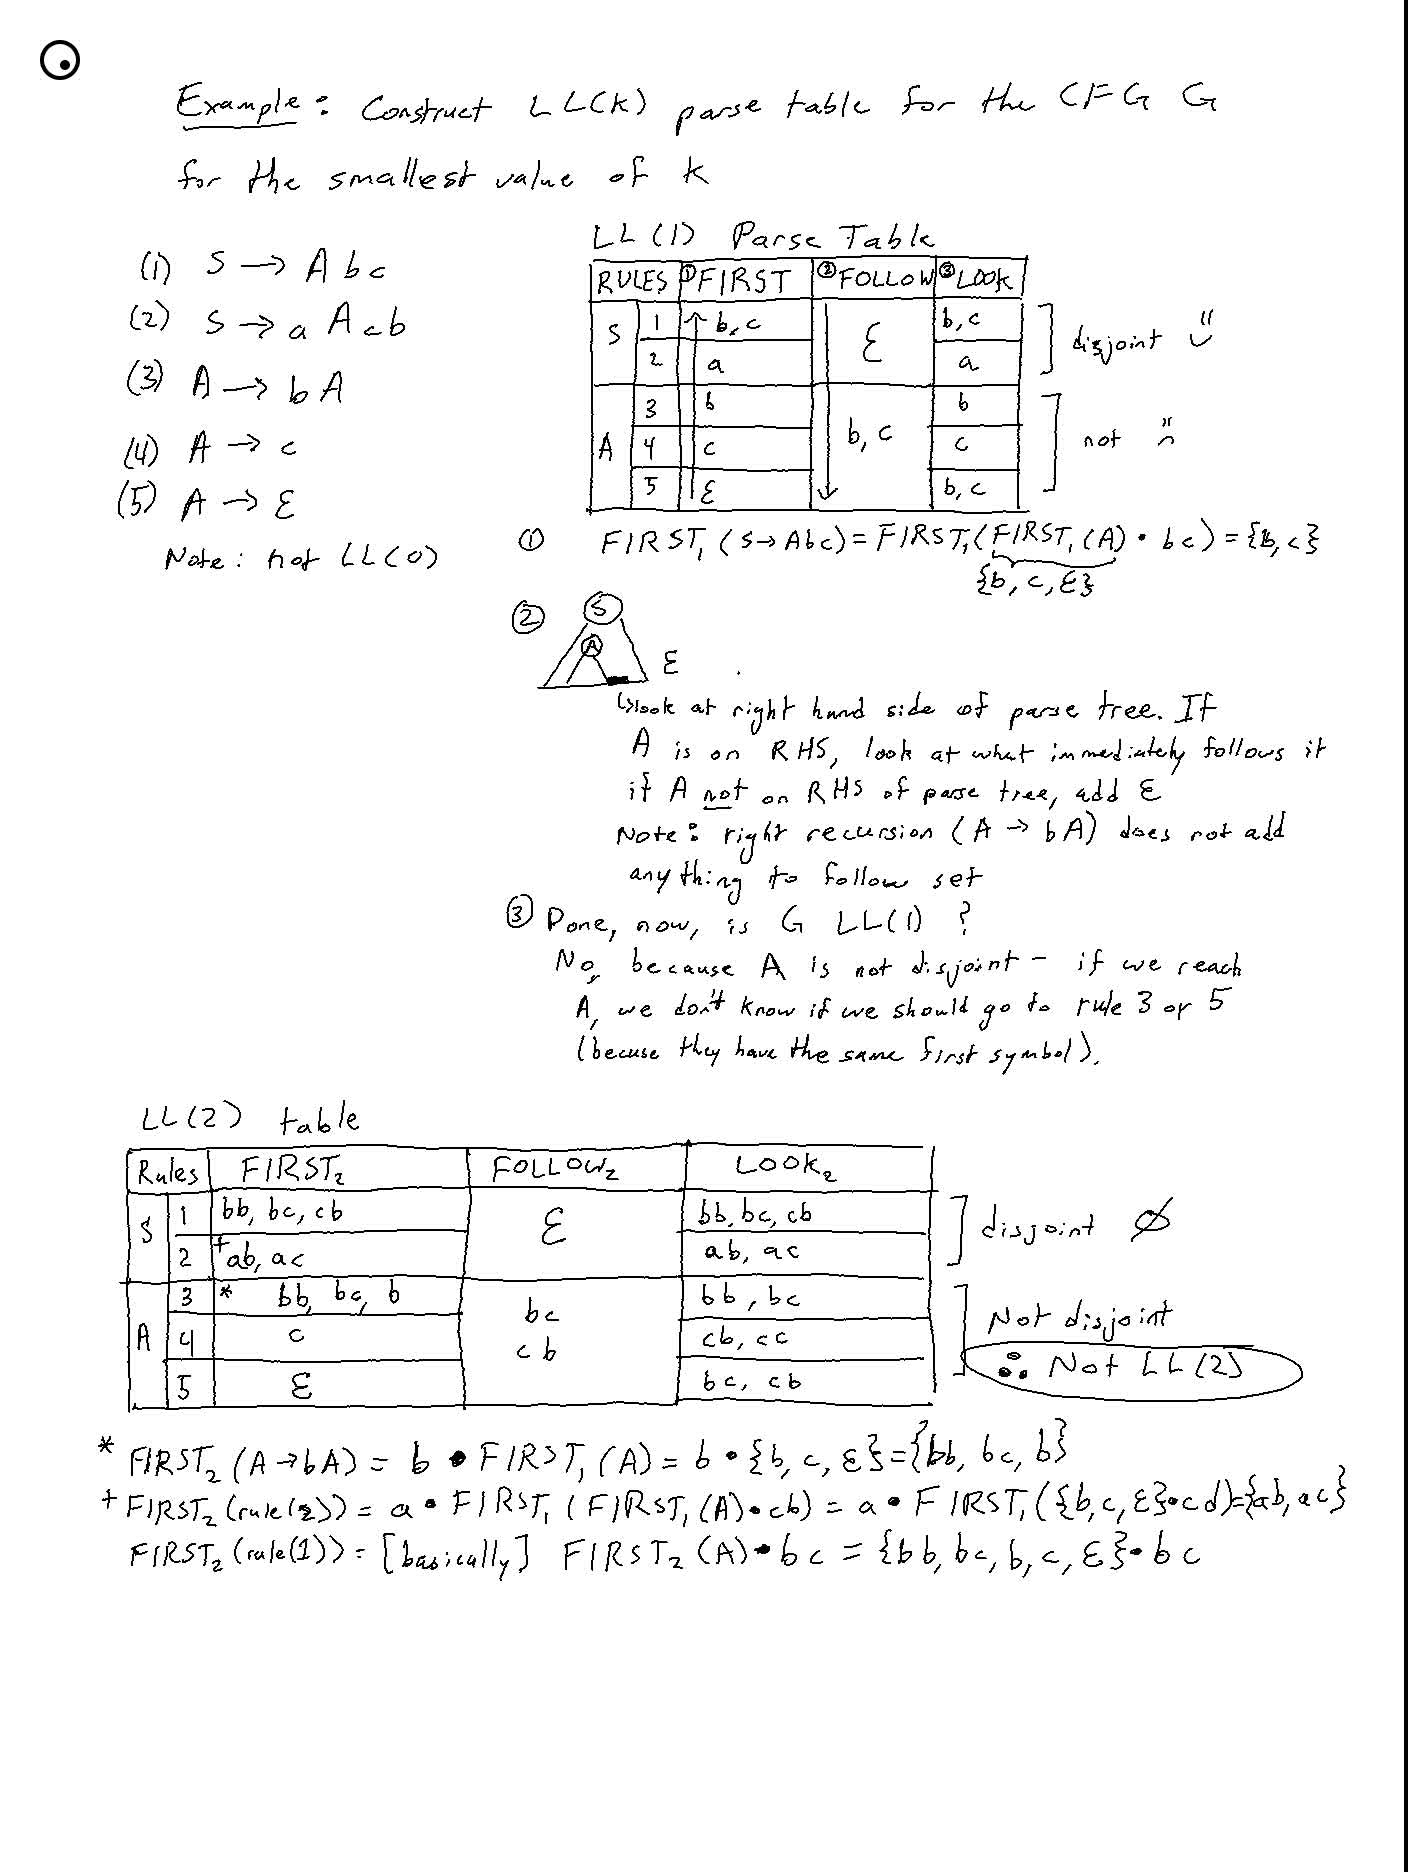 Example: Construct LL(k) parse table for the CFG G
for the smallest value of k
(1) S → Abc
(2) S → aAcb
(3) A → bA
(4) A → c
(5) A → ε
Note: not LL(0)
LL(1) Parse Table
RULES ① FIRST ② FOLLOW ③ LOOK
S 1 b, c ε b, c
2 a a
disjoint
A 3 b b, c b
4 c c
5 ε b, c
not
① FIRST₁(S→Abc) = FIRST₁(FIRST₁(A) • bc) = {b, c}
{b, c, ε}
② S
A
ε
↳look at right hand side of parse tree. If
A is on RHS, look at what immediately follows it
if A not on RHS of parse tree, add ε
Note: right recursion (A → bA) does not add
anything to follow set
③ Done, now, is G LL(1) ?
No, because A is not disjoint - if we reach
A, we don't know if we should go to rule 3 or 5
(becuse they have the same first symbol).
LL(2) table
Rules FIRST₂ FOLLOW₂ LOOK₂
S 1 bb, bc, cb ε bb, bc, cb
2 +ab, ac ab, ac
disjoint ∅
A 3 * bb, bc, b bc bb, bc
4 c cb cb, cc
5 ε bc, cb
Not disjoint
∴ Not LL(2)
* FIRST₂(A→bA) = b • FIRST₁(A) = b • {b, c, ε} = {bb, bc, b}
+ FIRST₂(rule(2)) = a • FIRST₁(FIRST₁(A)•cb) = a • FIRST₁({b, c, ε}•cd)={ab, ac}
FIRST₂(rule(1)) = [basically] FIRST₂(A)•bc = {bb, bc, b, c, ε}•bc